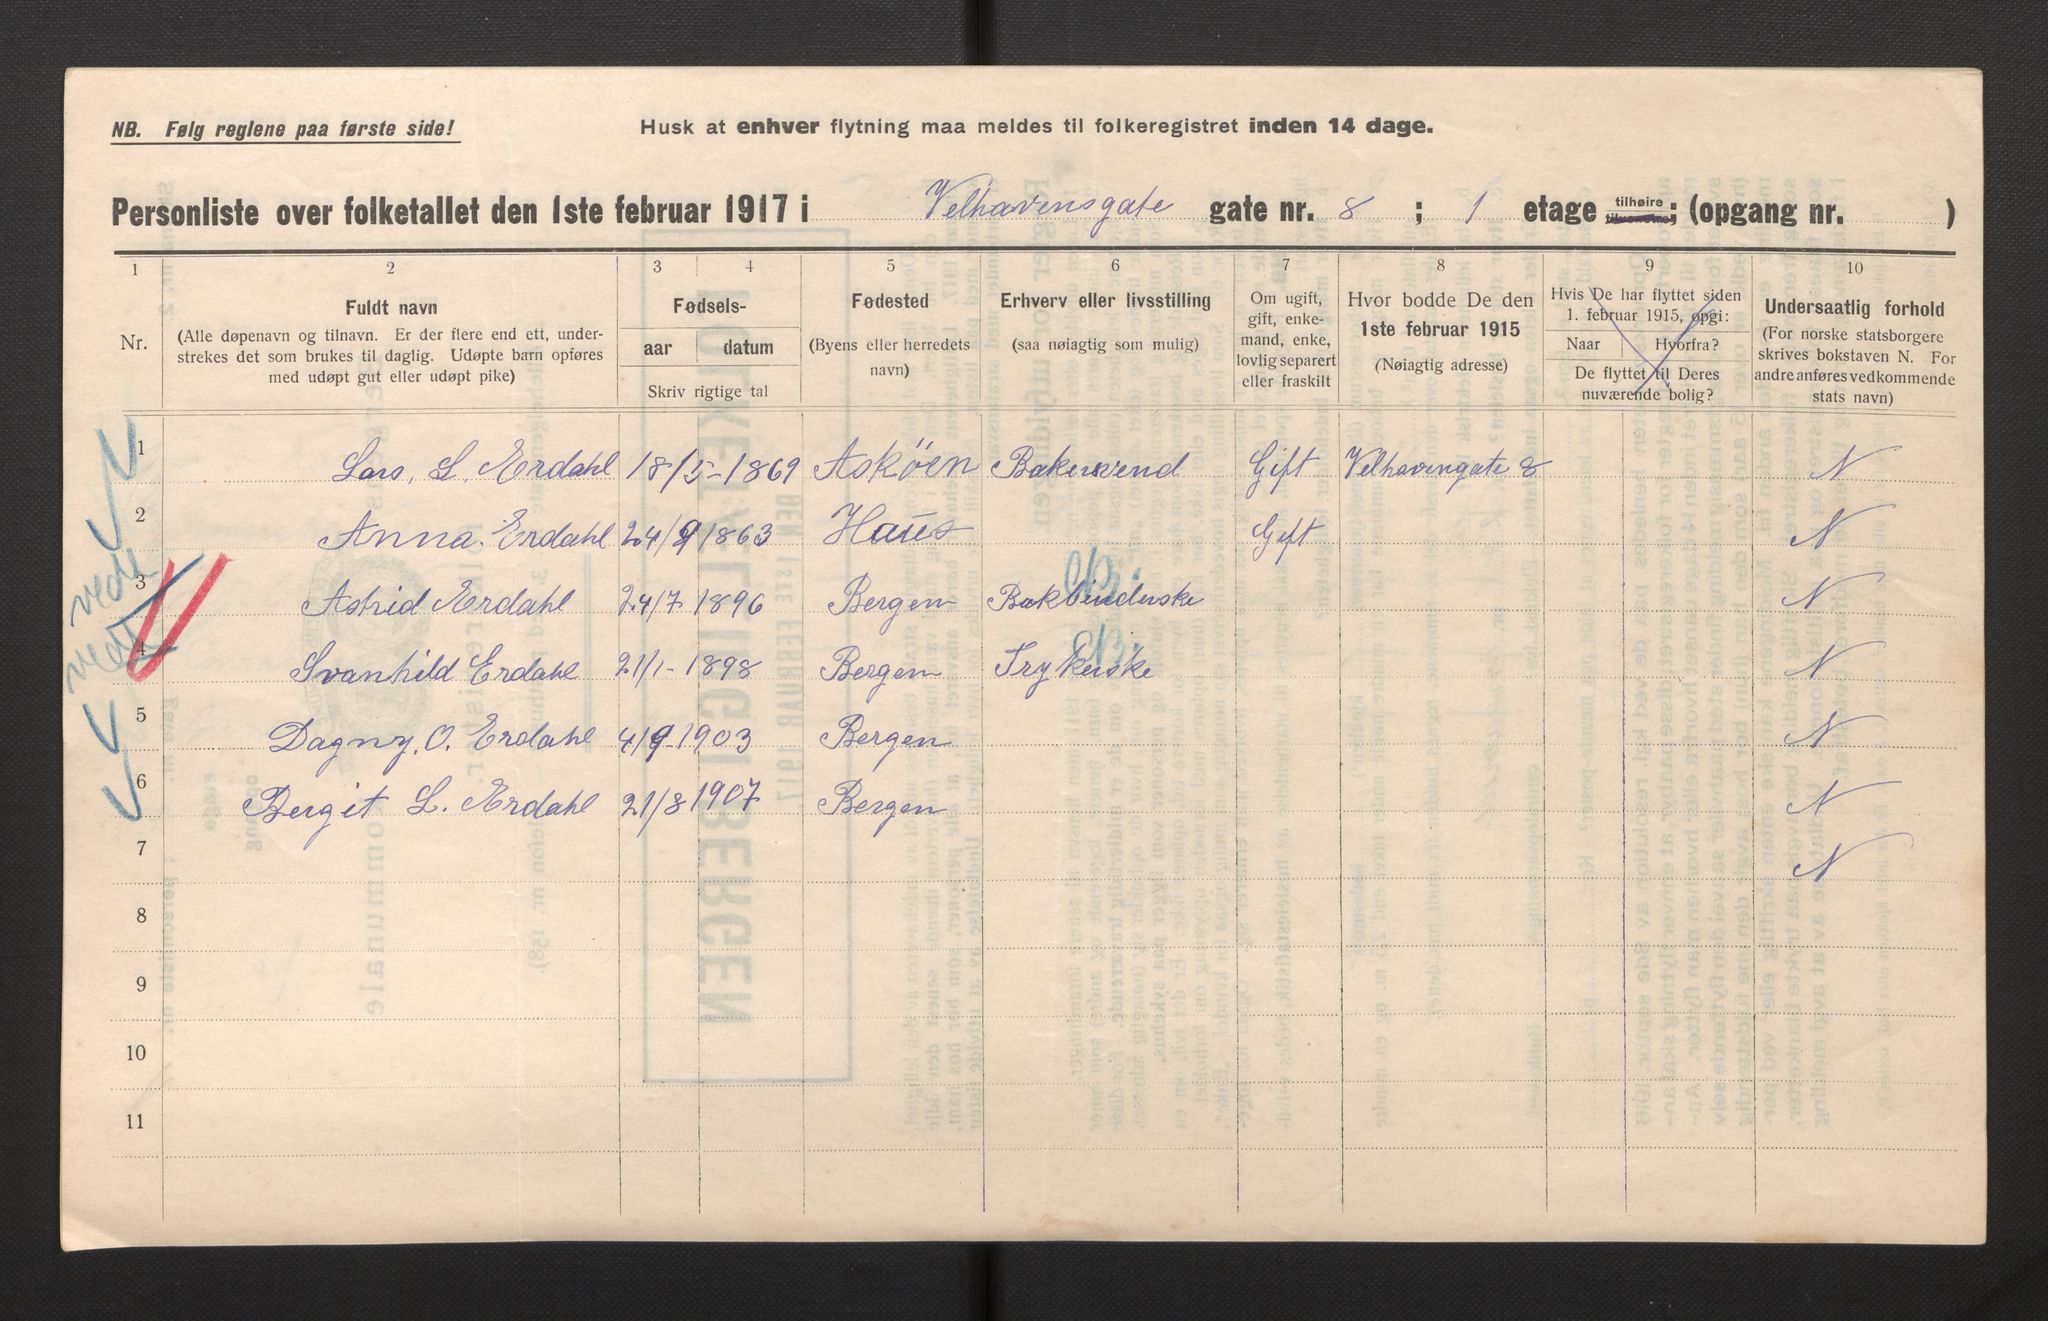 NB. Følg reglene paa første side!
Husk at enhver flytning maa meldes til folkeregistret inden 14 dage.
Personliste over folketallet den 1ste februar 1917 i Velhavensgate gate nr. 8 ; 1 etage tilhøire ; (opgang nr. )
1 2 3 4 5 6 7 8 9 10
Nr.
Fuldt navn
(Alle døpenavn og tilnavn. Er der flere end ett, under-
strekes det som brukes til daglig. Udøpte barn opføres
med udøpt gut eller udøpt pike)
Fødsels-
aar datum
Skriv rigtige tal
Fødested
(Byens eller herredets
navn)
Erhverv eller livsstilling
(saa nøiagtig som mulig)
Om ugift,
gift, enke-
mand, enke,
lovlig separert
eller fraskilt
Hvor bodde De den
1ste februar 1915
(Nøiagtig adresse)
Hvis De har flyttet siden
1. februar 1915, opgi:
Naar Hvorfra?
De flyttet til Deres
nuværende bolig?
Undersaatlig forhold
(For norske statsborgere
skrives bokstaven N. For
andre anføres vedkommende
stats navn)
1 Lars. L. Erdahl 18/5-1869 Askøen Bakersvend Gift Velhavengate 8 N
2 Anna. Erdahl 24/9 1863 Haus Gift N
3 Astrid Erdahl 24/7 1896 Bergen Bokbinderske N
4 Svanhild Erdahl 21/1-1898 Bergen Trykerske N
5 Dagny. O. Erdahl 4/9-1903 Bergen N
6 Bergit L. Erdahl 21/8 1907 Bergen N
7 N
8
9
10
11